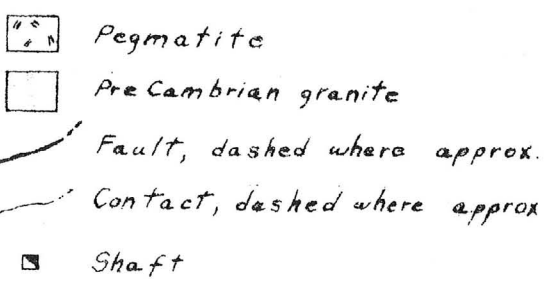 Pegmatite
Pre Cambrian granite
Fault, dashed where approx.
Contact, dashed where approx
Shaft